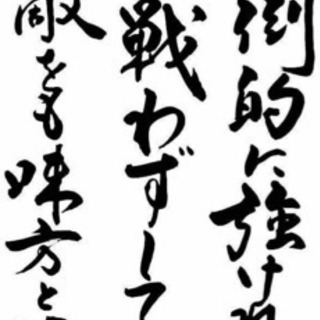 倒的に強け
戦わずして
敵をも味方と